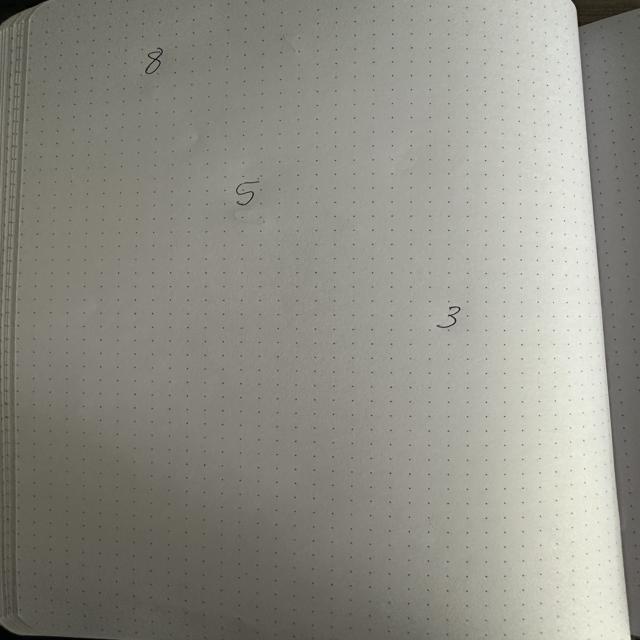 8
5
3